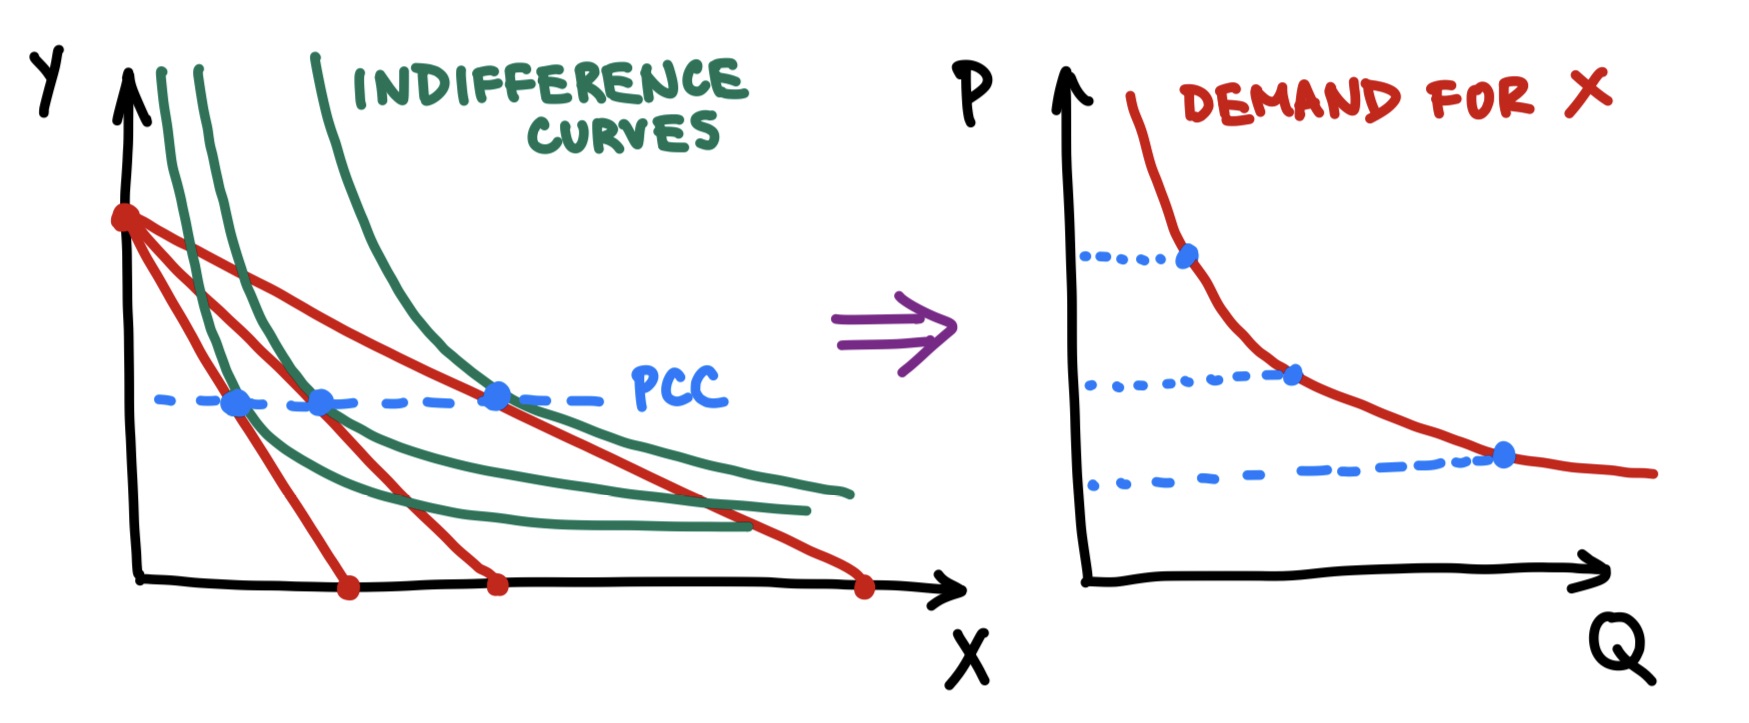 Y
INDIFFERENCE
CURVES
PCC
X
P
DEMAND FOR X
Q